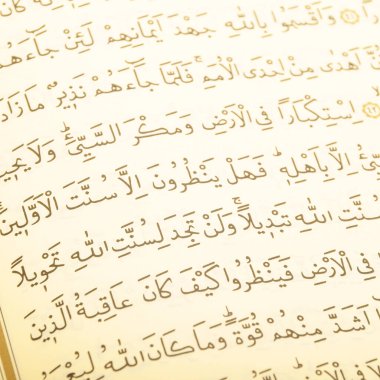 كَانَ
وَاَقْسَمُوا بِاللّٰهِ جَهْدَ اَيْمَانِهِمْ لَئِنْ جَآءَهُمْ
اَهْدٰى مِنْ اِحْدَى الْاُمَمِۚ فَلَمَّا جَآءَهُمْ نَذِيرٌ مَا زَادَ
اِسْتِكْبَاراً فِي الْاَرْضِ وَمَكْرَ السَّيِّئِۜ وَلَا
اِلَّا بِاَهْلِهِۜ فَهَلْ يَنْظُرُونَ اِلَّا سُنَّتَ الْاَوَّلِينَۚ
لِسُنَّتِ اللّٰهِ تَبْدِيلاًۚ وَلَنْ تَجِدَ لِسُنَّتِ اللّٰهِ تَحْوِيلاً
فِي الْاَرْضِ فَيَنْظُرُوا كَيْفَ كَانَ عَاقِبَةُ الَّذِينَ
اَشَدَّ مِنْهُمْ قُوَّةًۜ وَمَا كَانَ اللّٰهُ